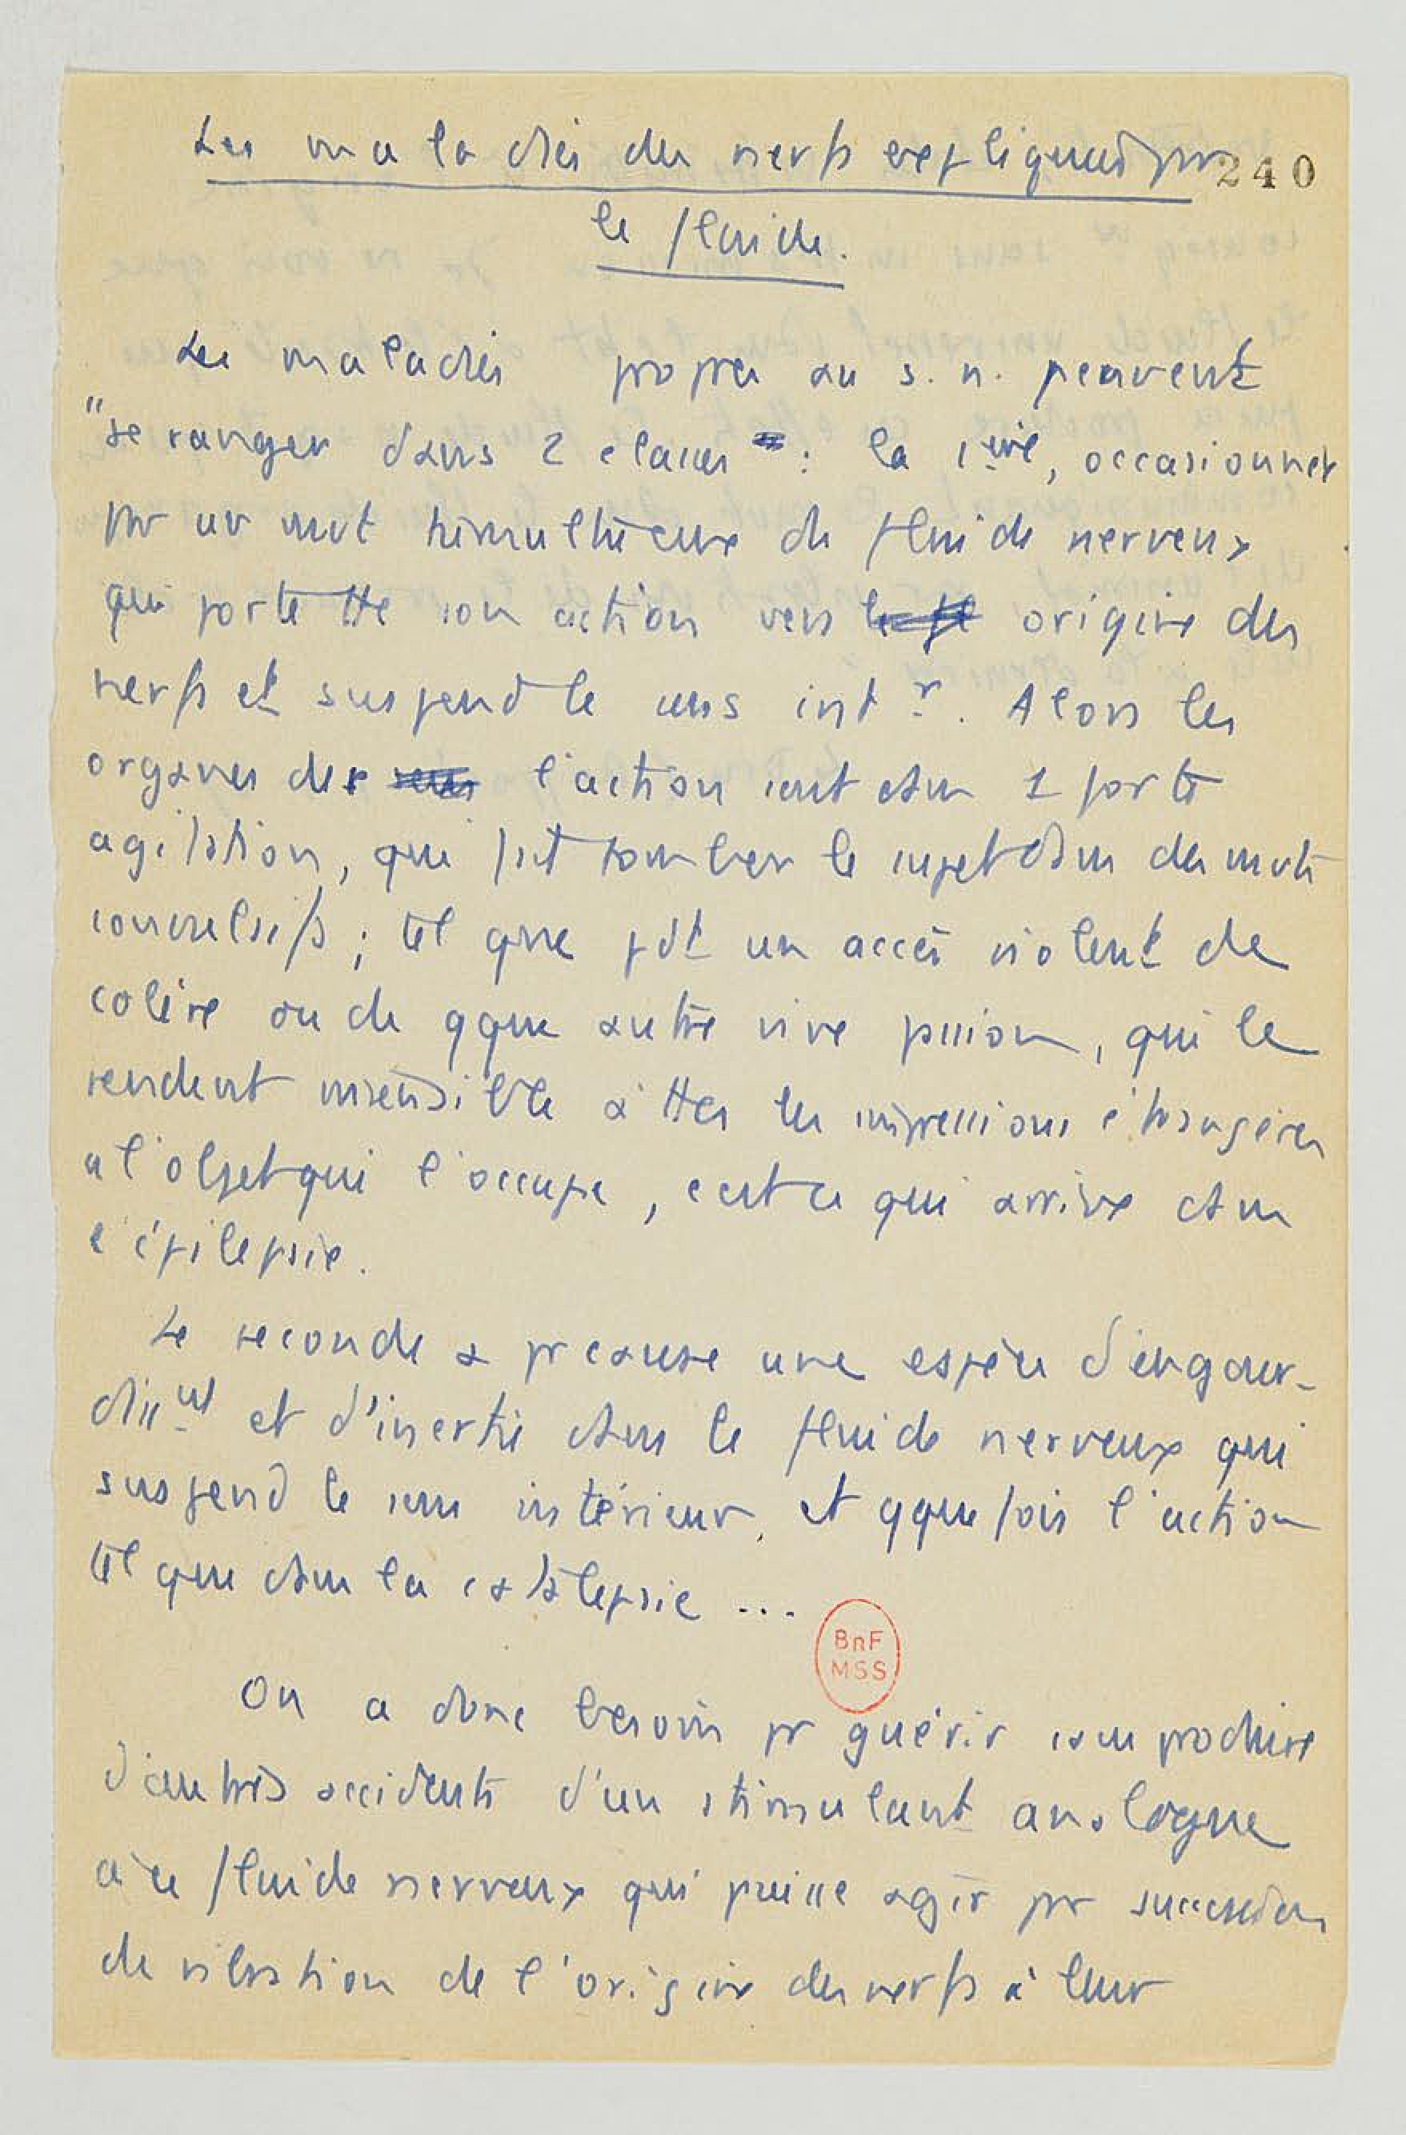 Les maladies des nerfs expliquées pr
240
le fluide.
Les maladies propres au s. n. peuvent
"se ranger dans 2 classes : la 1ère, occasionnet
pr un mvt tumultueux du fluide nerveux
qui porte tte son action vers origine des
nerfs et suspend le sens intr. Alors les
organes de l'action sont dans 1 forte
agitation, qui fait tomber le sujet dans des mvts
convulsifs ; tel que pdt un accès violent de
colère ou de qque autre vive passion, qui le
rendent insensible à ttes les impressions étrangères
à l'objet qui l'occupe, c'est ce qui arrive dans
l'épilepsie.
La seconde a pr cause une espèce d'engour-
dissmt et d'inertie dans le fluide nerveux qui
suspend le sens intérieur, et qquefois l'action
tel que dans la catalepsie ...
BnF
MSS
On a donc besoin pr guérir sans produire
d'autres accidents d'un stimulant analogue
à ce fluide nerveux qui puisse agir pr succession
de vibration de l'origine des nerfs à leur